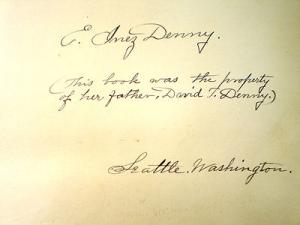 E. Inez Denny.
(This book was the property
of her father, David T. Denny.)
Seattle. Washington.